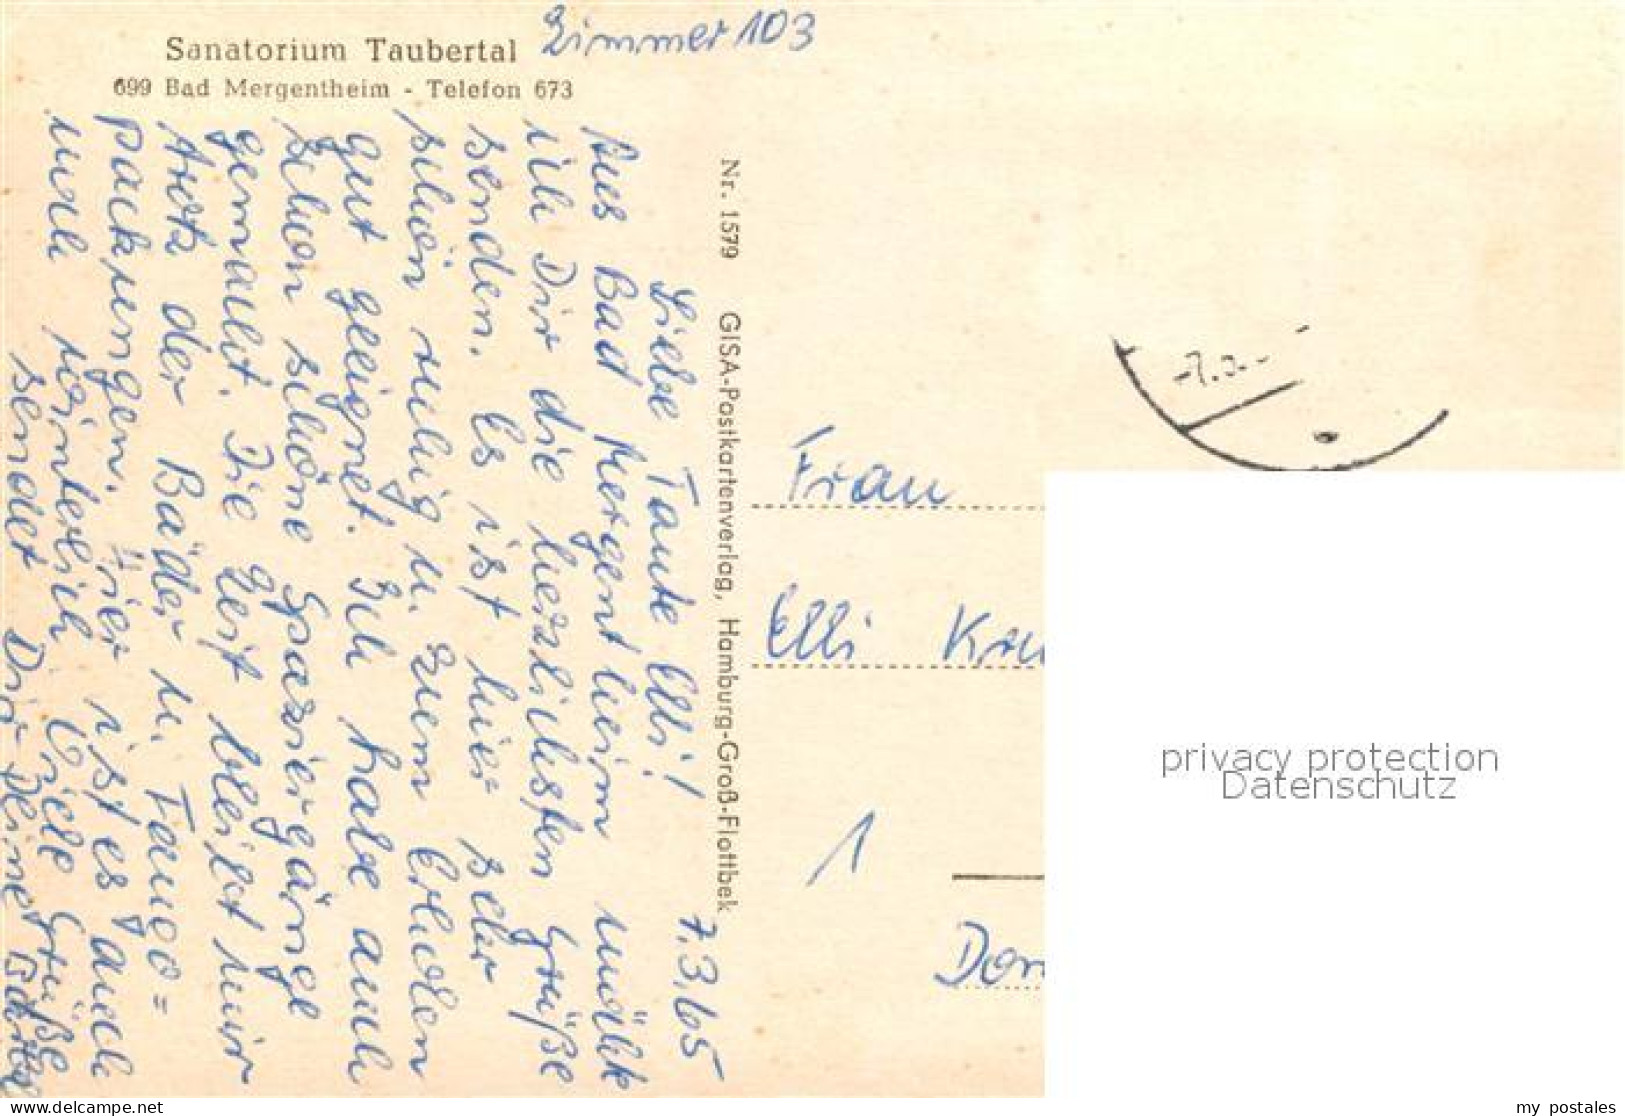 Sanatorium Taubertal
699 Bad Mergentheim - Telefon 673
Zimmer 103
7.3.65
Liebe Tante Elli!
Aus Bad Mergentheim möcht
ich Dir die herzlichsten Grüße
senden. Es ist hier sehr
schön ruhig u. zum Erholen
gut geeignet. Ich habe auch
schon schöne Spaziergänge
gemacht. Die Zeit bleibt mir
trotz der Bäder u. Fango=
packungen. Hier ist es auch
noch winterlich. Viele Grüße
sendet Dir Deine
Nr. 1579 GISA-Postkartenverlag, Hamburg-Groß-Flottbek
-7.3.-
Frau
Elli
1
privacy protection
Datenschutz
www.delcampe.net
my_postales